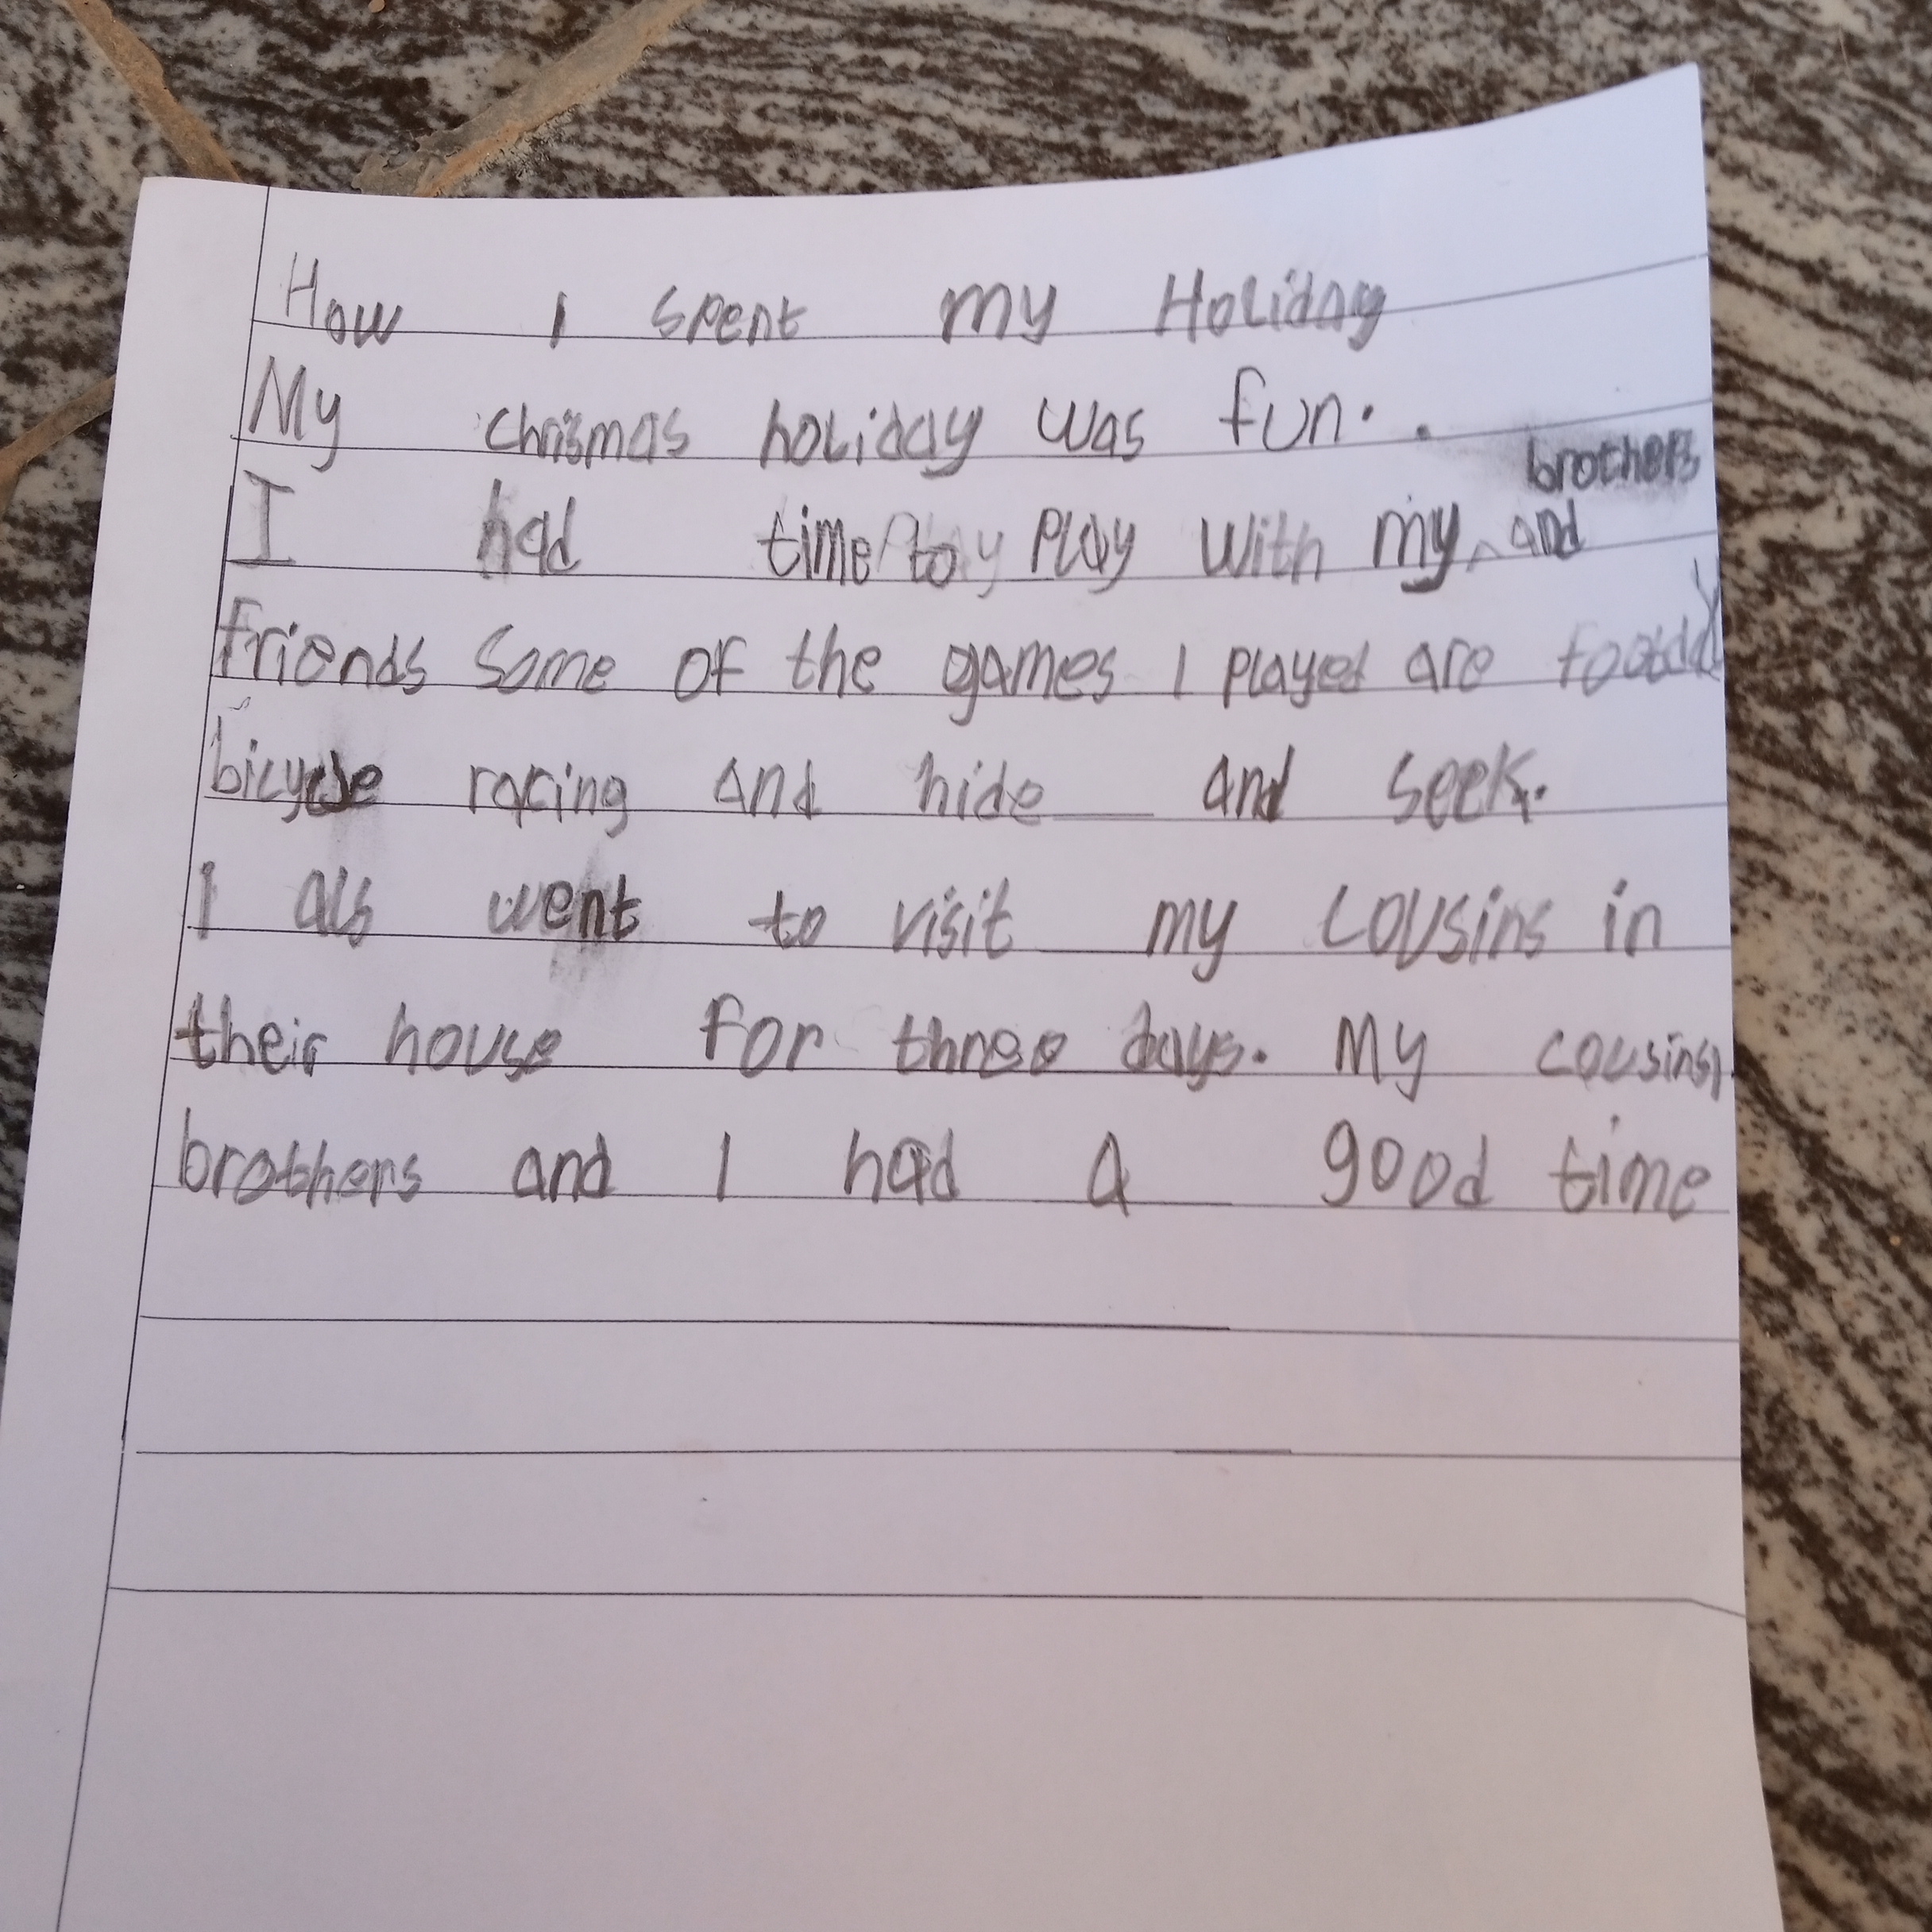 How I spent my Holiday
My chrismas holiday was fun.
brothers
I had time to play with my ^ and
friends some of the games I played are
bicycle racing and hide and seek.
I als went to visit my cousins in
their house for three days. My cousins,
brothers and I had a good time